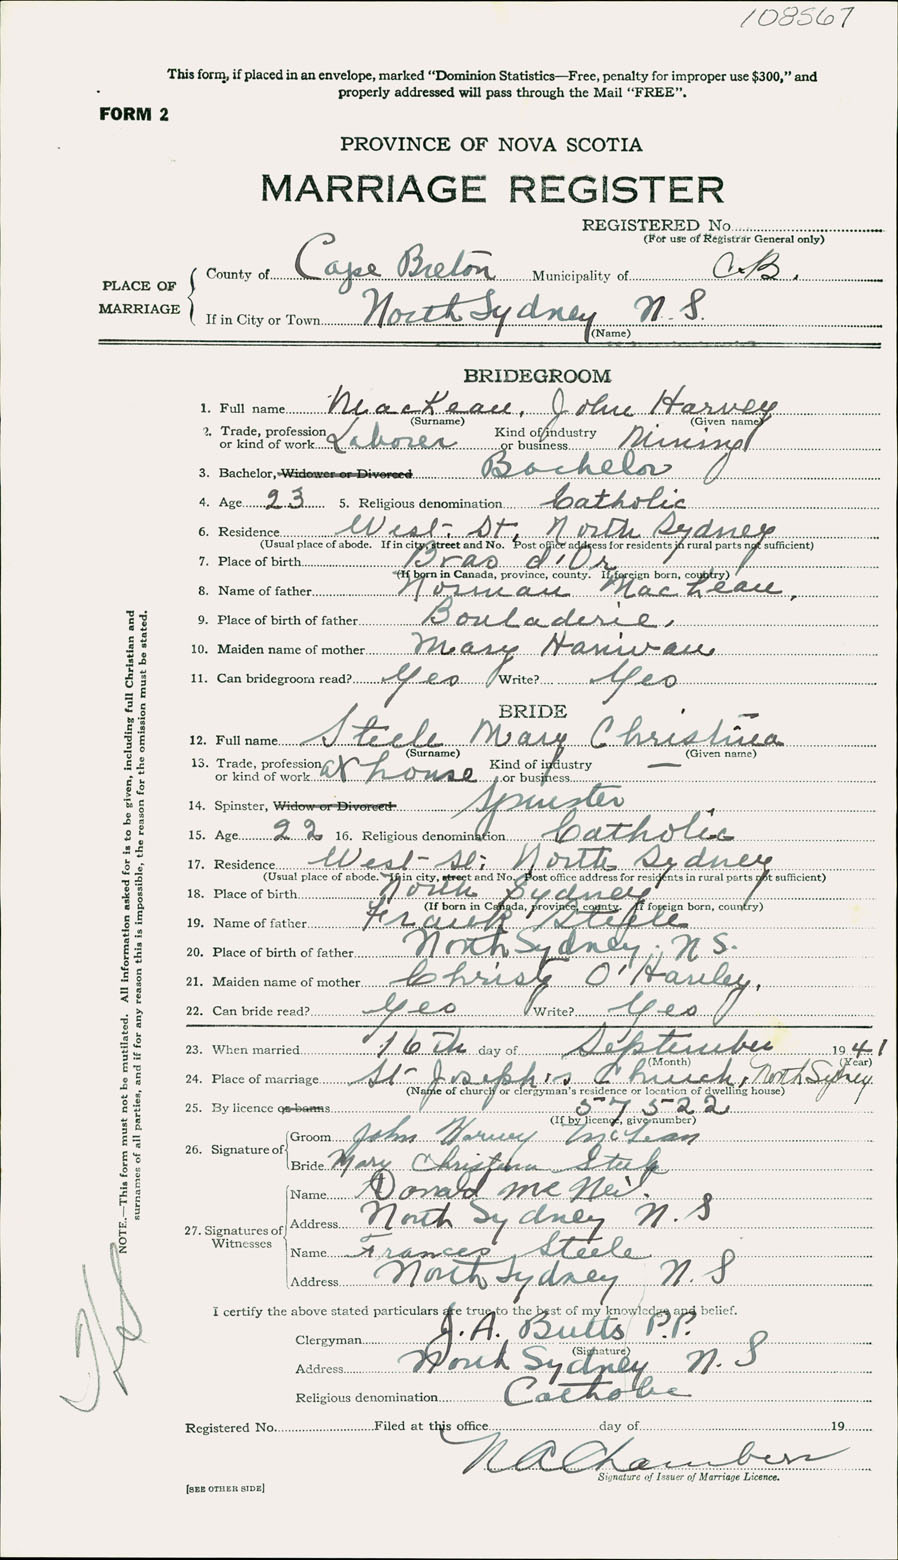 108567
This form, if placed in an envelope, marked “Dominion Statistics—Free, penalty for improper use $300,” and
properly addressed will pass through the Mail “FREE”.
FORM 2
PROVINCE OF NOVA SCOTIA
MARRIAGE REGISTER
REGISTERED No.
(For use of Registrar General only)
PLACE OF MARRIAGE
County of Cape Breton Municipality of C.B.
If in City or Town North Sydney N.S.
(Name)
BRIDEGROOM
1. Full name MacLean, John Harvey
(Surname) (Given name)
2. Trade, profession or kind of work Laborer Kind of industry or business Mining
3. Bachelor, Widower or Divorced Bachelor
4. Age 23 5. Religious denomination Catholic
6. Residence West St, North Sydney
(Usual place of abode. If in city, street and No. Post office address for residents in rural parts not sufficient)
7. Place of birth Bras d'Or
(If born in Canada, province, county. If foreign born, country)
8. Name of father Norman MacLean,
9. Place of birth of father Bouladerie,
10. Maiden name of mother Mary
11. Can bridegroom read? Yes Write? Yes
BRIDE
12. Full name Steele Mary Christina
(Surname) (Given name)
13. Trade, profession or kind of work at house Kind of industry or business —
14. Spinster, Widow or Divorced Spinster
15. Age 22 16. Religious denomination Catholic
17. Residence West St; North Sydney
(Usual place of abode. If in city, street and No. Post office address for residents in rural parts not sufficient)
18. Place of birth North Sydney
(If born in Canada, province, county. If foreign born, country)
19. Name of father Frank Steele
20. Place of birth of father North Sydney, N.S.
21. Maiden name of mother Christy O'Hanley,
22. Can bride read? Yes Write? Yes
23. When married 16th day of September 1941
(Month) (Year)
24. Place of marriage St Joseph's Church, North Sydney
(Name of church or clergyman's residence or location of dwelling house)
25. By licence or banns 57522
(If by licence, give number)
26. Signature of
Groom John Harvey McLean
Bride Mary Christina Steele
27. Signatures of Witnesses
Name Donald McNeil
Address North Sydney N.S
Name Frances Steele
Address North Sydney N.S
I certify the above stated particulars are true to the best of my knowledge and belief.
Clergyman J.A. Butts P.P.
(Signature)
Address North Sydney N.S
Religious denomination Catholic
Registered No. Filed at this office day of 19
N A Chambers
Signature of Issuer of Marriage Licence.
[SEE OTHER SIDE]
NOTE.—This form must not be mutilated. All information asked for is to be given, including full Christian and
surnames of all parties, and if for any reason this is impossible, the reason for the omission must be stated.